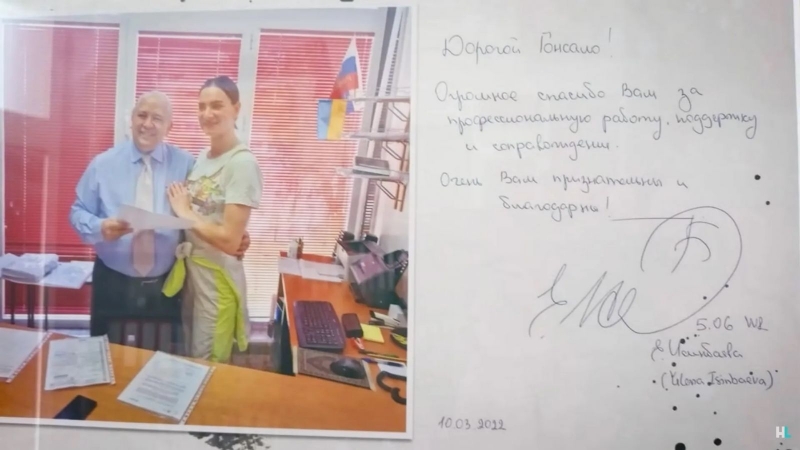 Дорогой Гонсало!
Огромное спасибо Вам за
профессиональную работу, поддержку
и сопровождение.
Очень Вам признательны и
благодарны!
5.06 WR
Е. Исинбаева
(Yelena Isinbaeva)
10.03 2022
HL